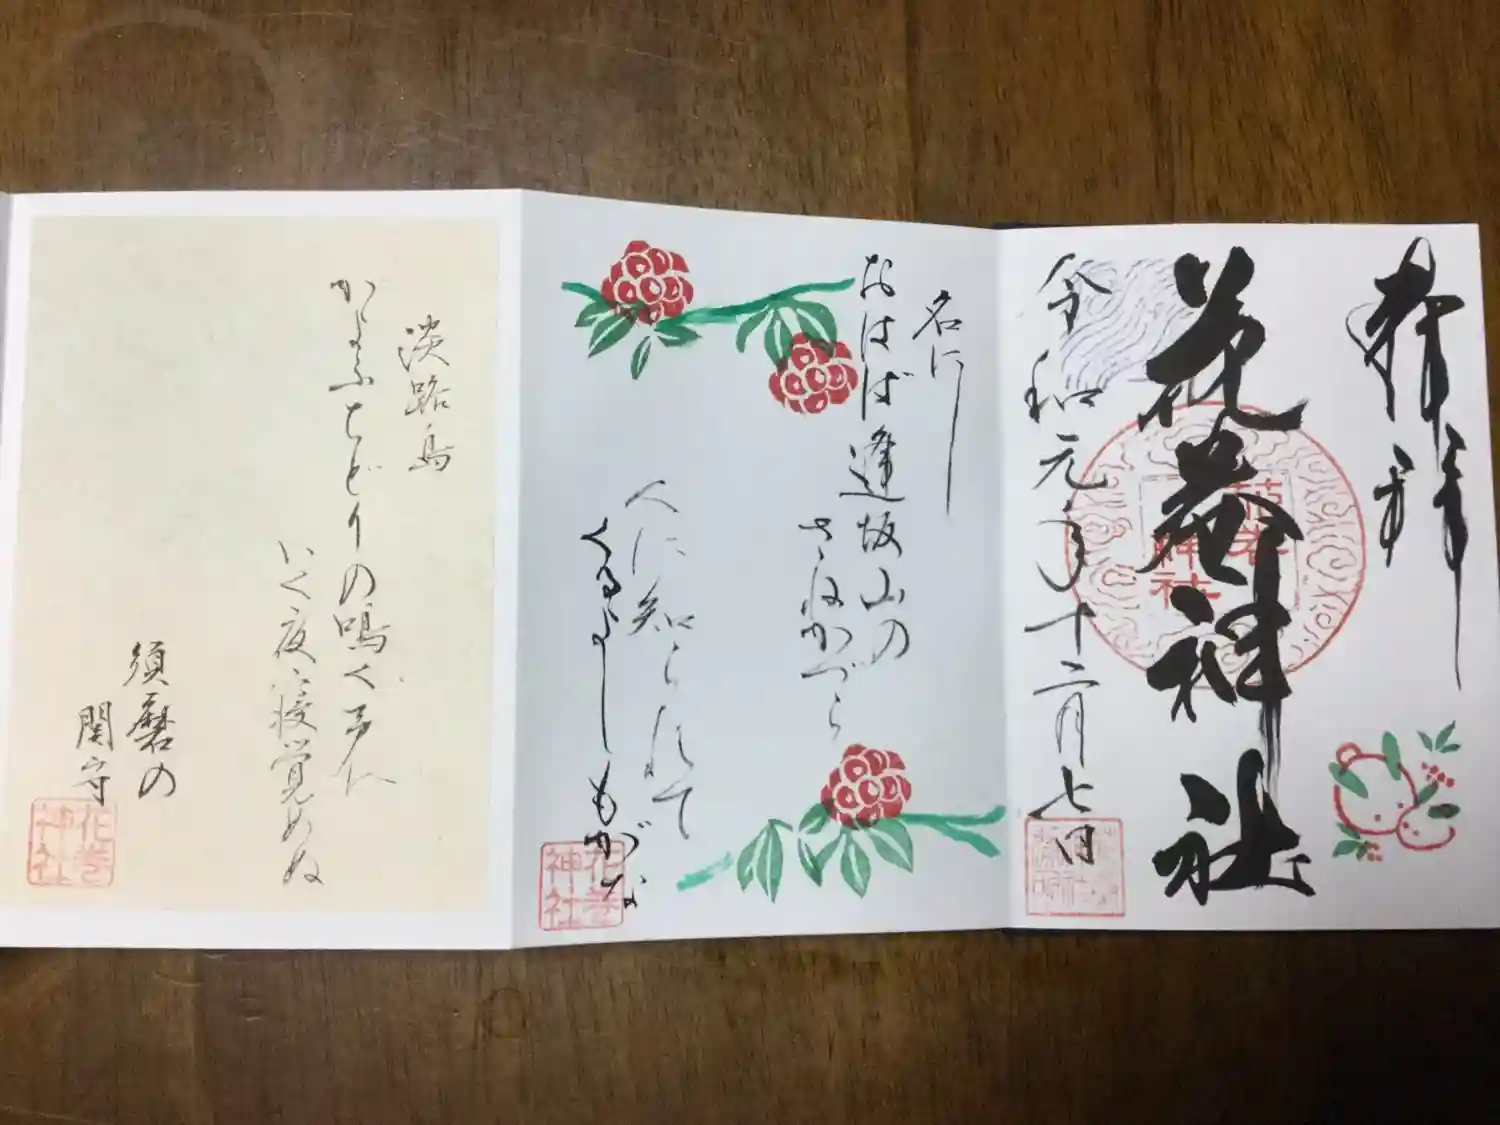 奉拝
花巻神社
令和元年十二月七日
花巻
神社
名にし
おはば逢坂山の
さねかづら
人に知られて
くるよしもがな
花巻
神社
淡路島
かよふちどりの鳴く声に
いく夜寝覚めぬ
須磨の
関守
花巻
神社